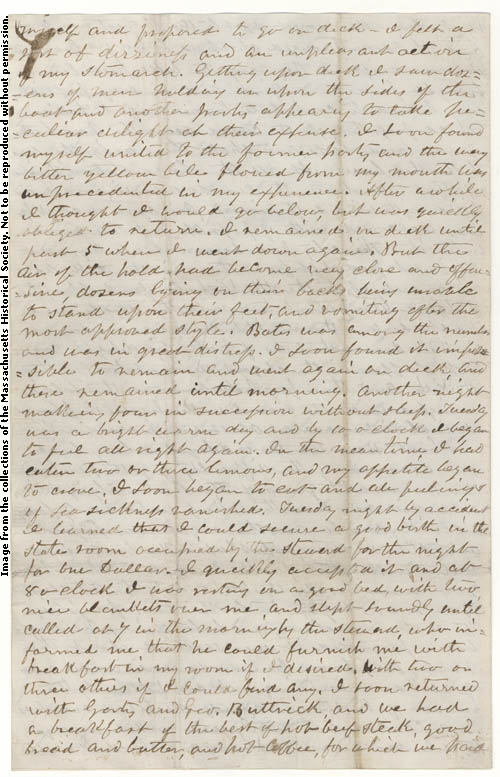 Image from the collections of the Massachusetts Historical Society. Not to be reproduced without permission.
myself and proposed to go on deck - I felt a
sort of dizziness and an unpleasant action
of my stomarch. Getting upon deck I saw doz=
=ens of men holding on upon the sides of the
boat and another party appearing to take pe=
=culiar delight at their expense. I soon found
myself united to the former party and the way
bitter yellow bile flowed from my mouth was
unprecedented in my experience. After a while
I thought I would go below, but was quickly
obliged to return. I remained on deck until
past 5 when I went down again. But the
air of the hold had become very close and offen=
sive, dozens lying on their backs being unable
to stand upon their feet, and vomiting after the
most approved style. Bates was among the number
and was in great distress. I soon found it impos=
=sible to remain and went again on deck and
there remained until morning. Another night
making four in succession without sleep. Tuesday
was a bright warm day and by 10 o clock I began
to feel all right again. In the mean time I had
eaten two or three lemons, and my appetite began
to crave, I soon began to eat and all feelings
of sea sickness vanished. Tuesday night by accident
I learned that I could secure a good birth in the
state room occupied by the steward for the night
for one Dollar. I quickly accepted it and at
8 o clock I was resting on a good bed, with two
nice blankets over me and slept soundly until
called at 7 in the morning by the steward, who in=
formed me that he could furnish me with
breakfast in my room if I desired. With two or
three others if I could find any. I soon returned
with Gorty and Geo. Buttrick and we had
a breakfast of the best of hot beef steak, good
bread and butter, and hot coffee, for which we paid